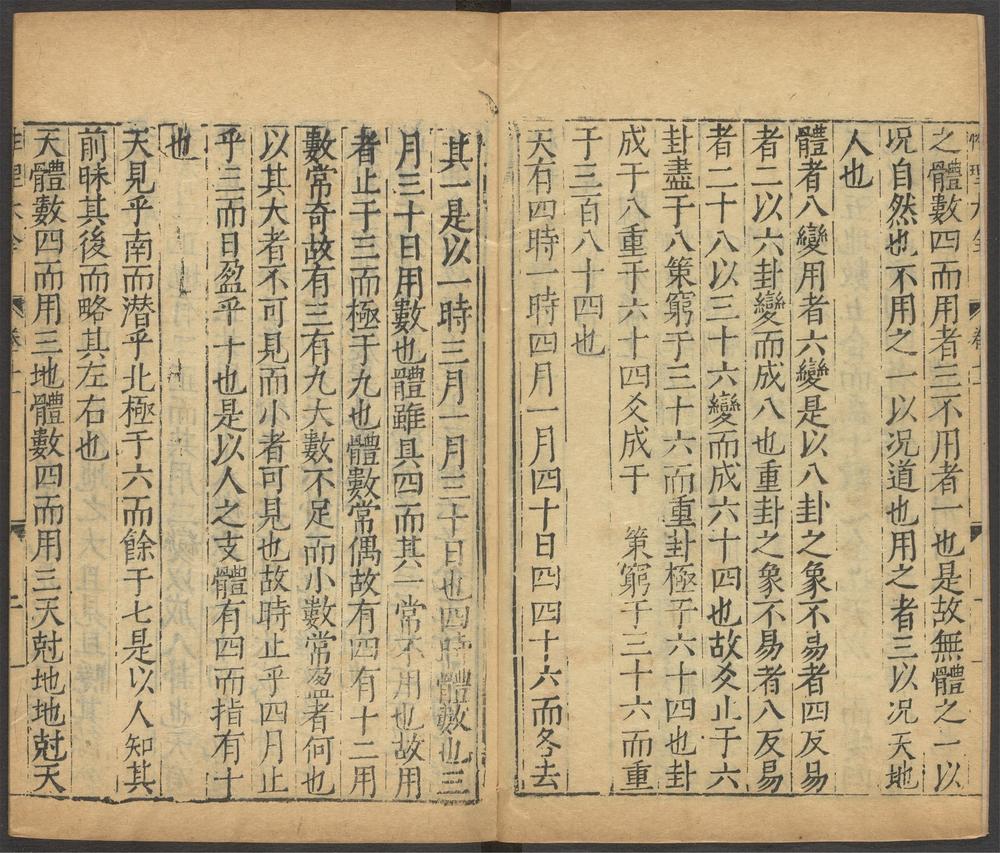 之體數四而用者三不用者一也是故無體之一以
况自然也不用之一以况道也用之者三以况天地
人也
體者八變用者六變是以八卦之象不易者四反易
者二以六卦變而成八也重卦之象不易者八反易
者二十八以三十六變而成六十四也故爻止于六
卦盡于八策窮于三十六而重卦極于六十四也卦
成于八重于六十四爻成于 策窮于三十六而重
于三百八十四也
天有四時一時四月一月四十日四四十六而各去
其一是以一時三月一月三十日也四時體數也三
月三十日用數也體雖具四而其一常不用也故用
者止于三而極于九也體數常偶故有四有十二用
數常奇故有三有九大數不足而小數常盈者何也
以其大者不可見而小者可見也故時止乎四月止
乎三而日盈乎十也是以人之支體有四而指有十
也
天見乎南而潛乎北極于六而餘于七是以人知其
前昧其後而略其左右也
天體數四而用三地體數四而用三天尅地地尅天